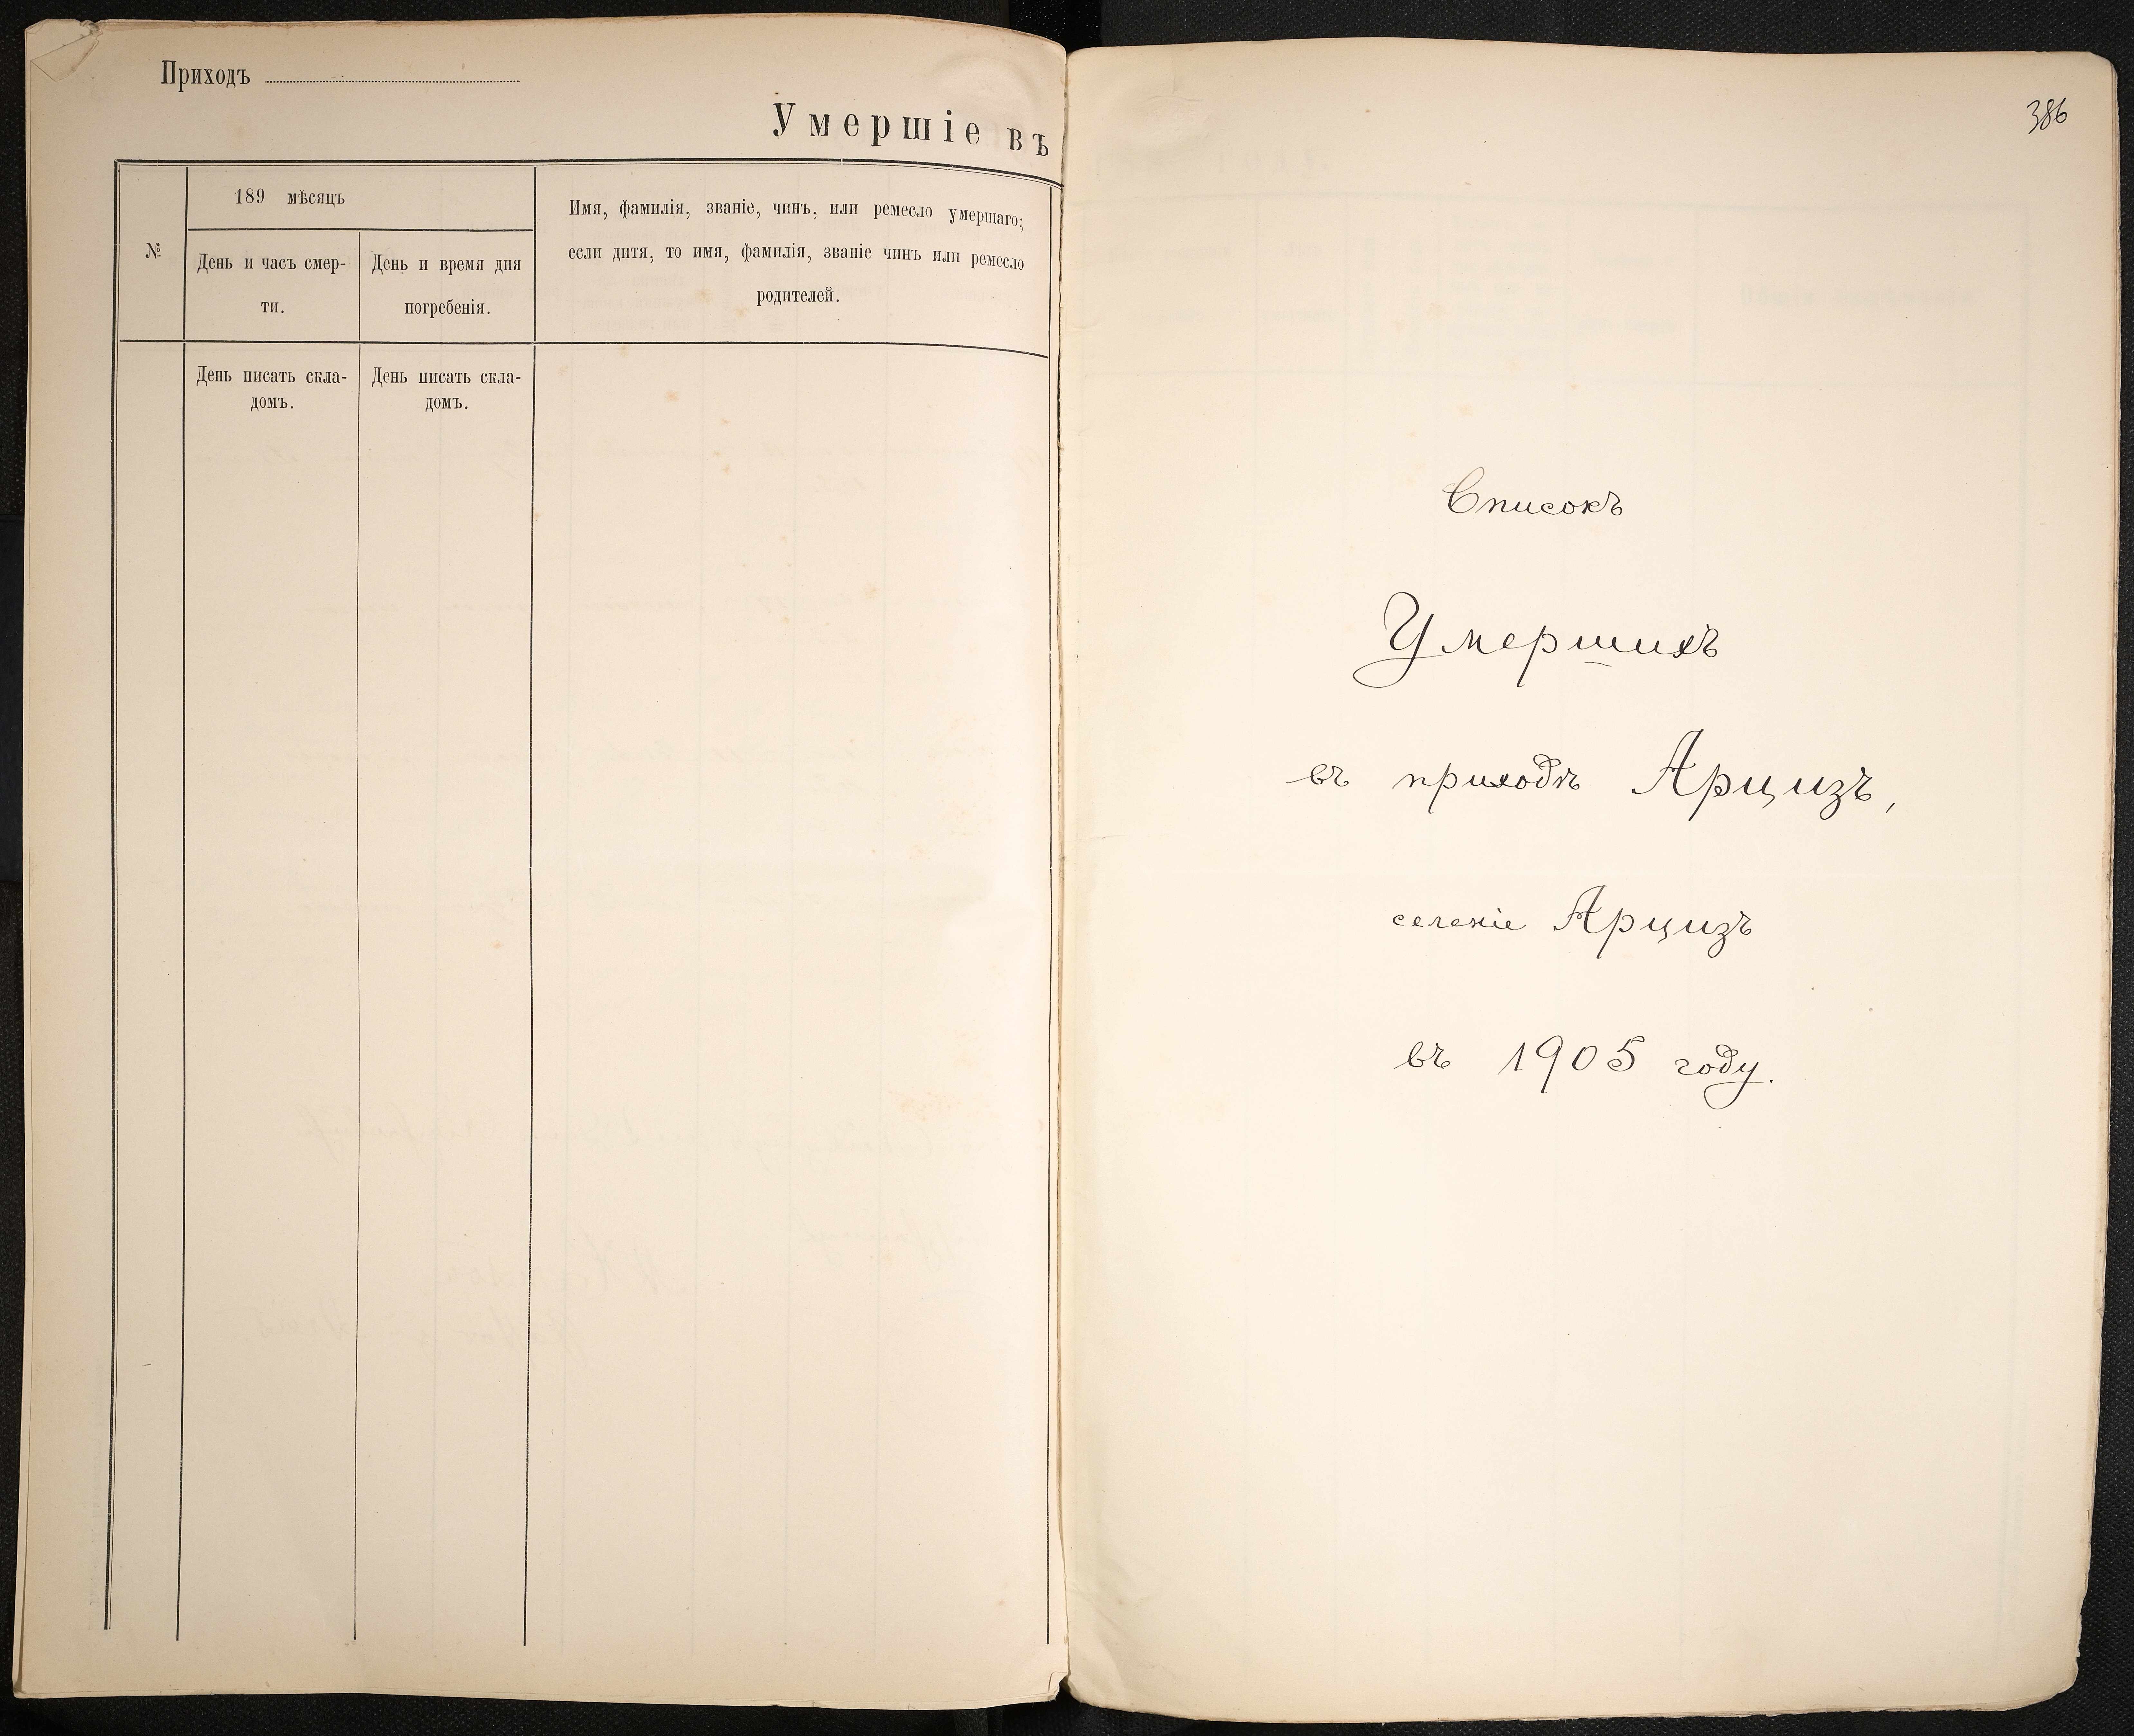 Приходъ
Умершіе въ
№
189 мѣсяцъ
День и часъ смер-
ти.
День и время дня
погребенія.
Имя, фамилія, званіе, чинъ, или ремесло умершаго;
если дитя, то имя, фамилія, званіе чинъ или ремесло
родителей.
День писать скла-
домъ.
День писать скла-
домъ.
386
Списокъ
Умершихъ
въ приходѣ Арцизъ,
селеніе Арцизъ
въ 1905 году.